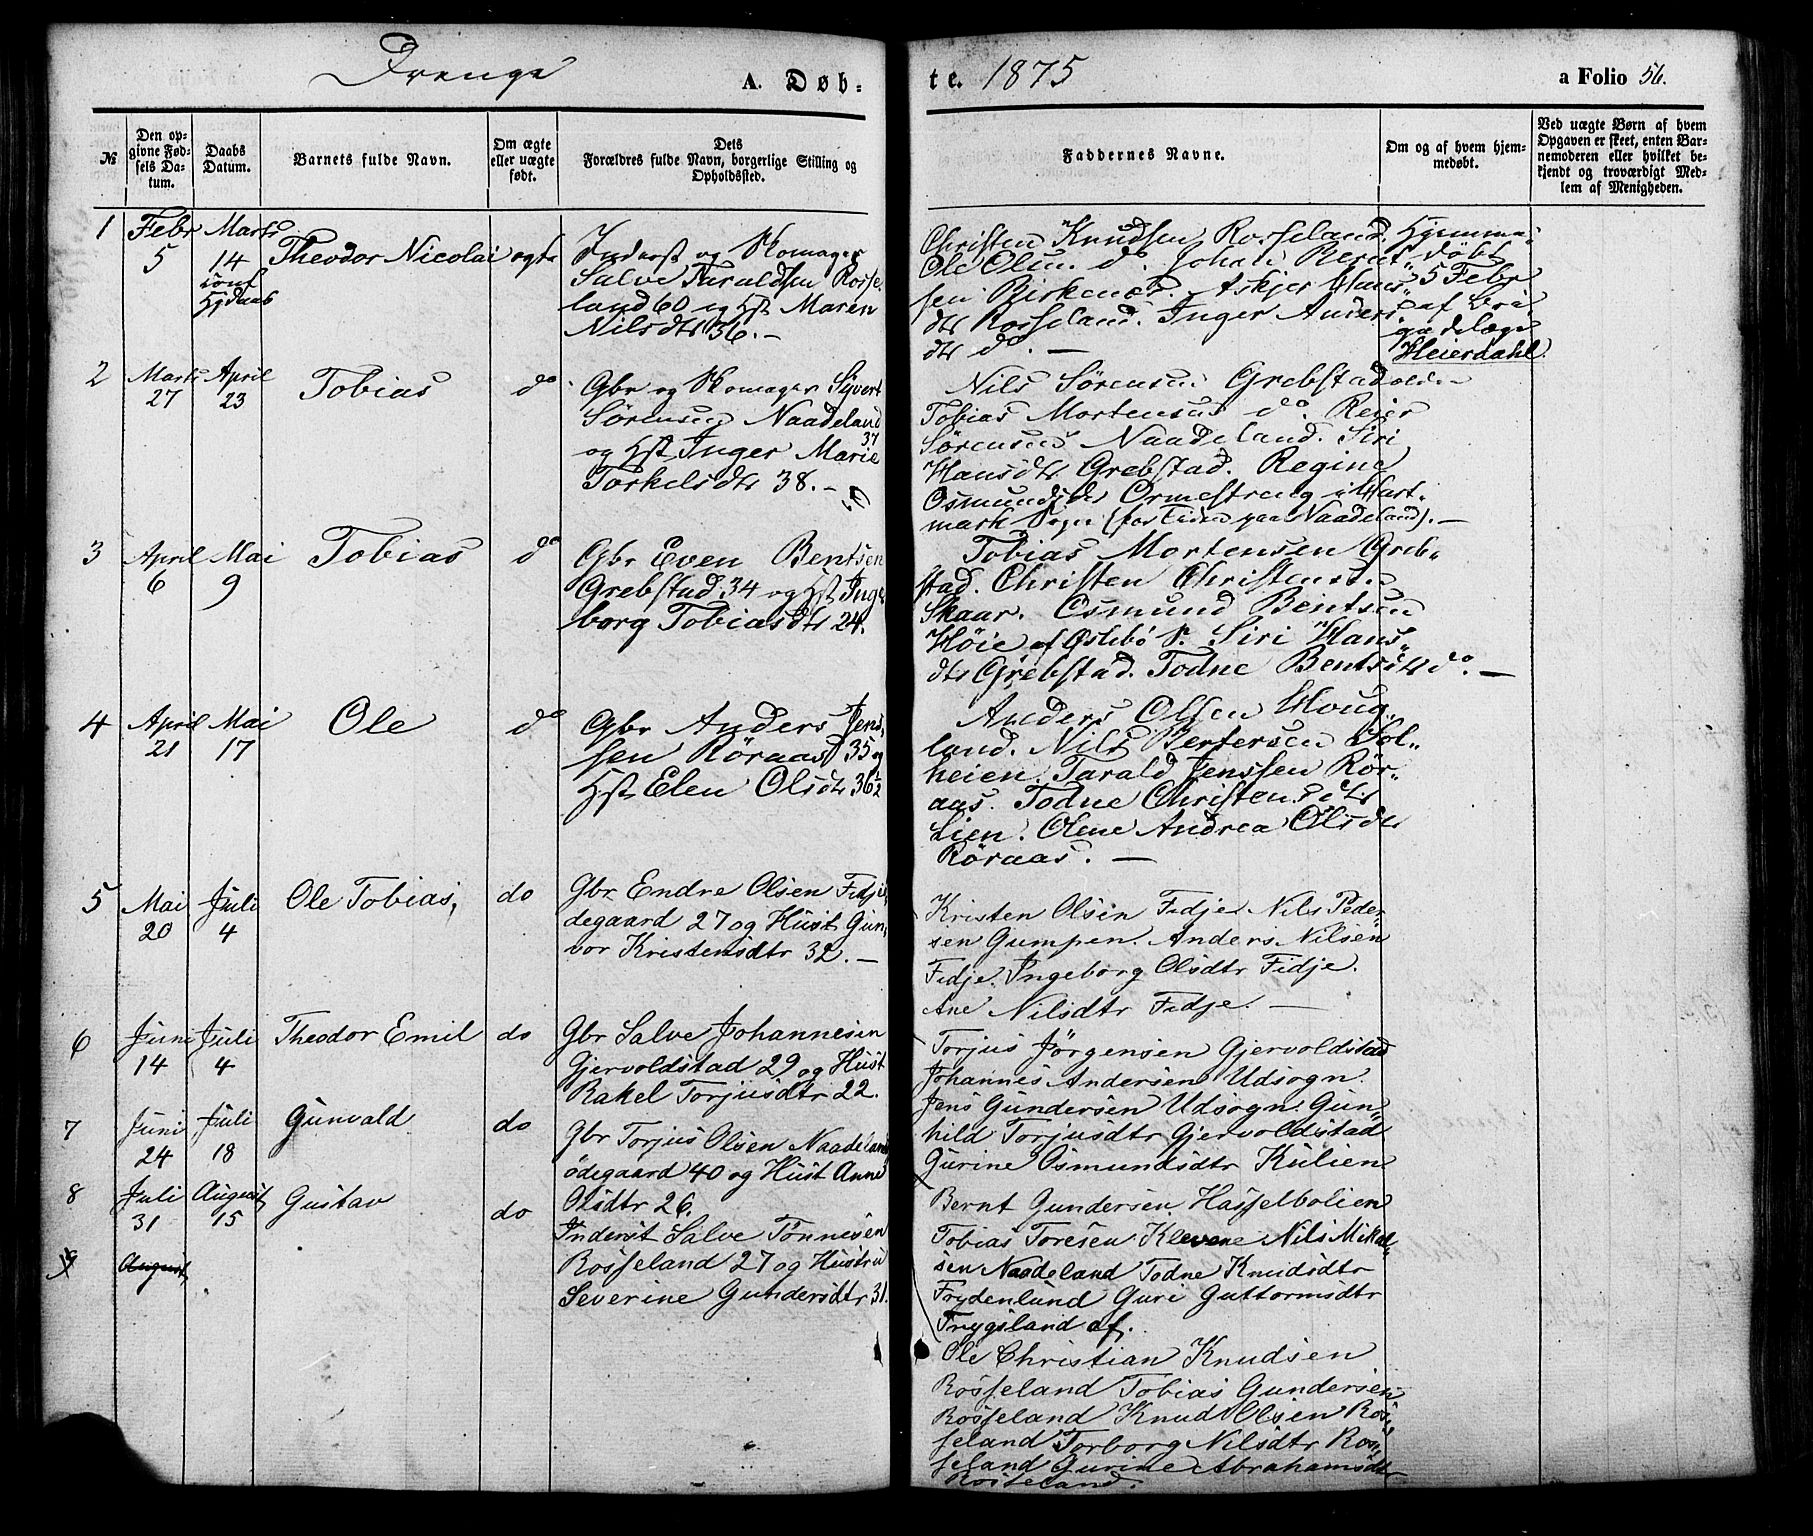 Drenge A. Døb-
te. 1875
a Folio 56.
№
Den opgivne Fødsels Datum.
Daabs Datum.
Barnets fulde Navn.
Om ægte eller uægte født.
Dets Forældres fulde Navn, borgerlige Stilling og Opholdssted.
Faddernes Navne.
Om og af hvem hjemmedøbt.
Ved uægte Børn af hvem Opgaven er skeet, enten Barnemoderen eller hvilket bekjendt og troværdigt Medlem af Menigheden.
1
Febr
5
Marts
14
conf
Hjdaab
Theodor Nicolai
ægte
Inderst og Skomager
Salve Taraldsen Rosse-
land 60 og Hst Maren
Nilsdtr 36. –
Christen Knudsen Rosseland.
Ole Olsen do. Johan Bernt-
sen Birkenes. Askjer Hans-
dtr Rosseland. Inger Anders
dtr do. —
Hjemme-
døbt
5 Febr
af
Heierdahl.
2
Marts
27
April
23
Tobias
do
Gbr og Skomager Sivert
Sörensen Naadeland
37
og Hst Inger Marie
Torkelsdtr 38. –
Nils Sörensen Grebstad
Tobias Mortensen do. Reier
Sörensen Naadeland. Siri
Hansdtr Grebstad. Regine
Osmundsdtr Ormestreng i Hart-
mark Sogn (for Tiden paa Naadeland). —
3
April
6
Mai
9
Tobias
do
Gbr Even Bentsen
Grebstad 34 og Hst Inge-
borg Tobiasdtr 24.
Tobias Mortensen Greb-
stad. Christen Christensen
Skaar. Osmund Bentsen
Høie af Øslebö P. Siri Hans-
dtr Grebstad. Todne Bentsdtr do. —
4
April
21
Mai
17
Ole
do
Gbr Anders Jens-
sen Röraas 35 og
Hst Elen Olsdtr 36½
Anders Olsen Houg-
land. Nils Bertersen Sol-
heien. Tarald Jenssen Rör-
aas. Todne Christensdtr
Lien. Olene Andrea Olsdtr
Röraas. —
5
Mai
20
Juli
4
Ole Tobias,
do
Gbr Endre Olsen Fidje-
degaard 27 og Hust Gun-
vor Kristensdtr 32. —
Kristen Olsen Fidje. Nils Peder-
sen Gumpen. Anders Nilsen
Fidje. Ingeborg Olsdtr Fidje.
Ane Nilsdtr Fidje. —
6
Juni
14
Juli
4
Theodor Emil
do
Gbr Salve Johannesen
Gjervoldstad 29 og Hust
Rakel Torjusdtr 22.
Torjus Jörgensen Gjervoldstad
Johannes Andersen Udsogn.
Jens Gundersen Udsogn. Gun-
hild Torjusdtr Gjervoldstad
Gurine Osmundsdtr Kulien
7
Juni
24
Juli
18
Gunvald
do
Gbr Torjus Olsen Naadeland
ödegaard 40 og Hust Anne
Olsdtr 26.
Bernt Gundersen. Hasselbolien
Tobias Toresen Klevene Nils Mikal-
sen Naadeland Todne Knudsdtr
Frydenlund Guri Guttormsdtr
Trygsland af.
8
Juli
31
August
15
Gustav
do
Inderst Salve Tönnesen
Rosseland 27 og Hustru
Severine Gundersdtr 31.
Ole Christian Knudsen
Rosseland Tobias Gundersen
Rosseland Knud Olsen Ros-
seland Torborg Nilsdtr Ros-
seland Gurine Abrahamsdtr
Rosseland.
9
August